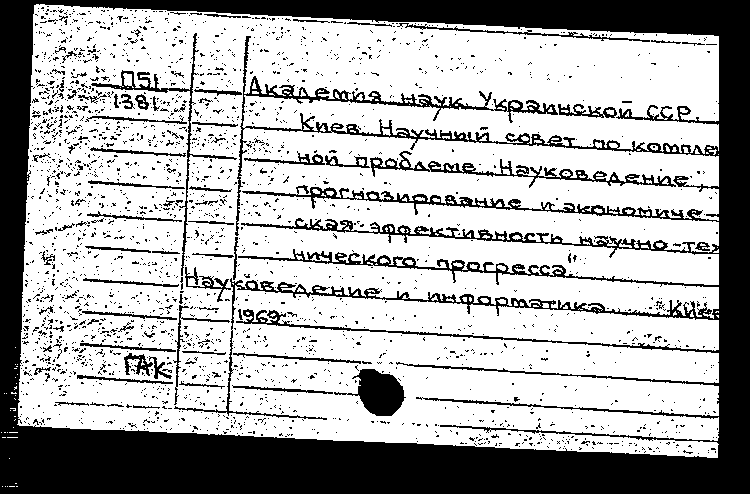 П51
1381
Академия наук Украинской ССР.
Киев. Научный совет по комплек
ной проблеме „Науковедение,
прогнозирование и экономиче-
ская эффективность научно-тех
нического прогресса"
Науковедение и информатика Киев
1969.
ГАК